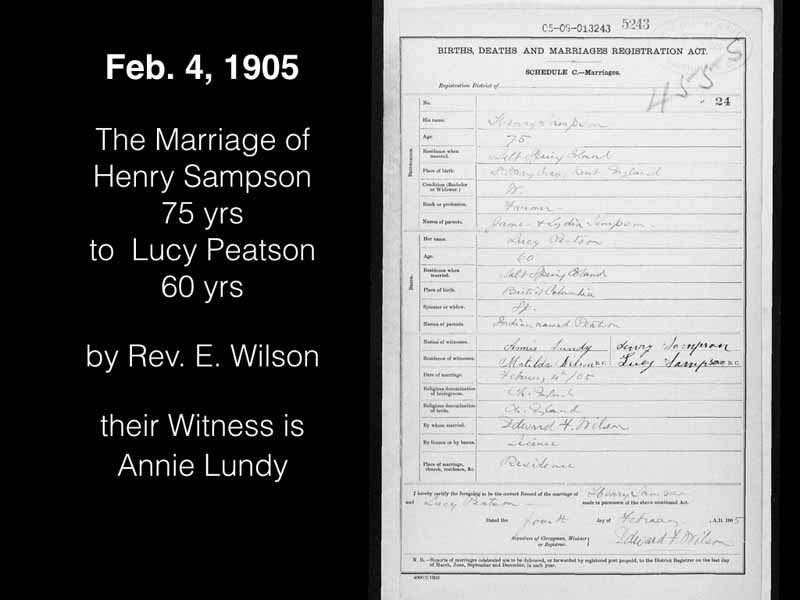 Feb. 4, 1905
The Marriage of
Henry Sampson
75 yrs
to Lucy Peatson
60 yrs
by Rev. E. Wilson
their Witness is
Annie Lundy
05-09-013243 5243
BIRTHS, DEATHS AND MARRIAGES REGISTRATION ACT.
SCHEDULE C.—Marriages.
Registration District of
4555
No. 24
Bridegroom.
His name. Henry Sampson
Age. 75
Residence when married. Salt Spring Island
Place of birth. Kent England
Condition (Bachelor or Widower.) W.
Rank or profession. Farmer
Names of parents. James & Lydia Sampson
Bride.
Her name. Lucy Peatson
Age. 60
Residence when married. Salt Spring Island
Place of birth. British Columbia
Spinster or widow. Sp.
Names of parents. Indian named Peatson
Names of witnesses. Annie Lundy Henry Sampson
Residence of witnesses. Matilda Wilson B.C. Lucy Sampson B.C.
Date of marriage. February 4th/05
Religious denomination of bridegroom. Ch. England
Religious denomination of bride. Ch. England
By whom married. Edward F. Wilson
By license or by banns. Licence
Place of marriage, church, residence, &c. Residence
I hereby certify the foregoing to be the correct Record of the marriage of Henry Sampson
and Lucy Peatson made in pursuance of the above mentioned Act.
Dated the fourth day of February, A.D. 1905
Signature of Clergyman, Minister or Registrar. Edward F. Wilson
N. B.—Reports of marriages celebrated are to be delivered, or forwarded by registered post prepaid, to the District Registrar on the last day
of March, June, September and December, in each year.